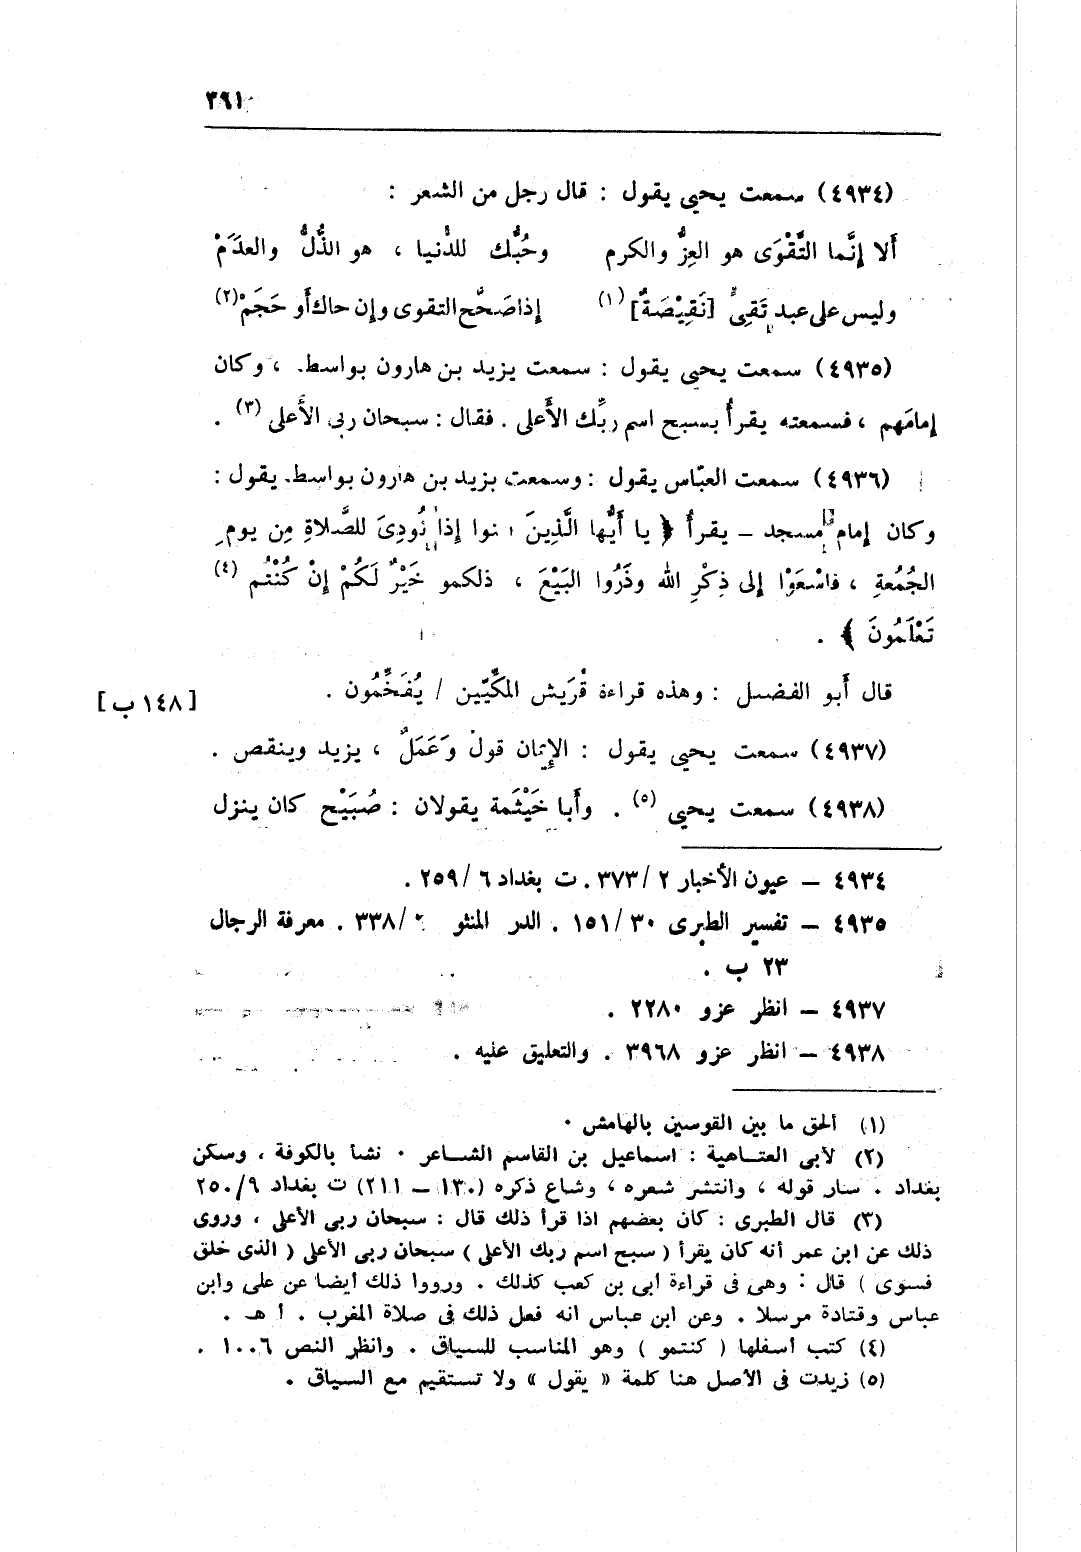 ٣٩١
(٤٩٣٤) سمعت يحيى يقول : قال رجل من الشعر :
أَلا إنَّما التَّقْوَى هو العِزُّ والكرم وحُبُّك للدُّنيا ، هو الذُّلُّ والعدَمْ
وليس على عبد تَقِىٍّ [نَقِيْصَةٌ] (١) إذا صَحَّح التقوى وإن حاك أَو حَجَمْ (٢)
(٤٩٣٥) سمعت يحيى يقول : سمعت يزيد بن هارون بواسط ، وكان
إمامَهم ، فسمعته يقرأُ بسبح اسم ربِّك الأَعلى . فقال : سبحان ربى الأَعلى (٣) .
(٤٩٣٦) سمعت العبّاس يقول : وسمعت يزيد بن هارون بواسط يقول :
وكان إمام مسجد – يقرأُ ﴿ يا أَيُّها الَّذِينَ نوا إِذا نُودِىَ للصَّلاةِ مِن يومِ
الجُمُعةِ ، فاسْعَوْا إلى ذِكْرِ الله وذَرُوا البَيْعَ ، ذلكمو خَيْرٌ لَكُمْ إنْ كُنْتُم (٤)
تَعْلَمُونَ ﴾ .
قال أَبو الفضل : وهذه قراءة قُرَيش المكِّيّين / يُفَخِّمُون . [ ١٤٨ ب ]
(٤٩٣٧) سمعت يحيى يقول : الإيمان قولٌ وَعَمَلٌ ، يزيد وينقص .
(٤٩٣٨) سمعت يحيى (٥) . وأَبا خَيْثَمة يقولان : صُبَيْح كان ينزل
٤٩٣٤ – عيون الأخبار ٢ /٣٧٣ . ت بغداد ٦ /٢٥٩ .
٤٩٣٥ – تفسير الطبرى ٣٠ /١٥١ . الدر المنثو ٦ /٣٣٨ . معرفة الرجال
٢٣ ب .
٤٩٣٧ – انظر عزو ٢٢٨٠ .
٤٩٣٨ – انظر عزو ٣٩٦٨ . والتعليق عليه .
(١) ألحق ما بين القوسين بالهامش .
(٢) لأبى العتاهية : اسماعيل بن القاسم الشاعر . نشأ بالكوفة ، وسكن
بغداد . سار قوله ، وانتشر شعره ، وشاع ذكره (١٣٠ – ٢١١) ت بغداد ٢٥٠/٩
(٣) قال الطبرى : كان بعضهم اذا قرأ ذلك قال : سبحان ربى الأعلى ، وروى
ذلك عن ابن عمر أنه كان يقرأ ( سبح اسم ربك الأعلى ) سبحان ربى الأعلى ( الذى خلق
فسوى ) قال : وهى فى قراءة أبى بن كعب كذلك . ورووا ذلك أيضا عن على وابن
عباس وقتادة مرسلا . وعن ابن عباس انه فعل ذلك فى صلاة المغرب . أ هـ .
(٤) كتب أسفلها ( كنتمو ) وهو المناسب للسياق . وانظر النص ١٠٠٦ .
(٥) زيدت فى الأصل هنا كلمة « يقول » ولا تستقيم مع السياق .